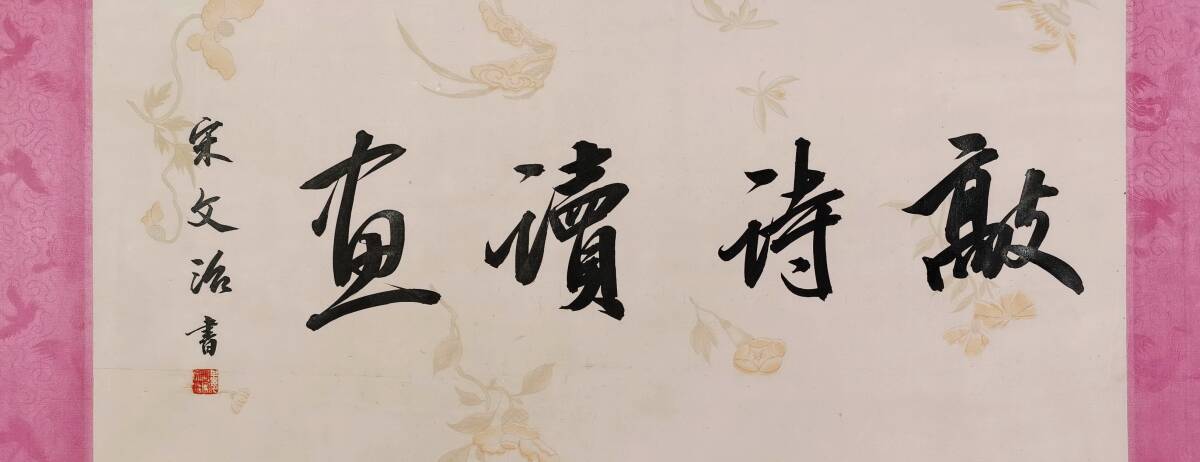 敲詩讀画
宋文治書